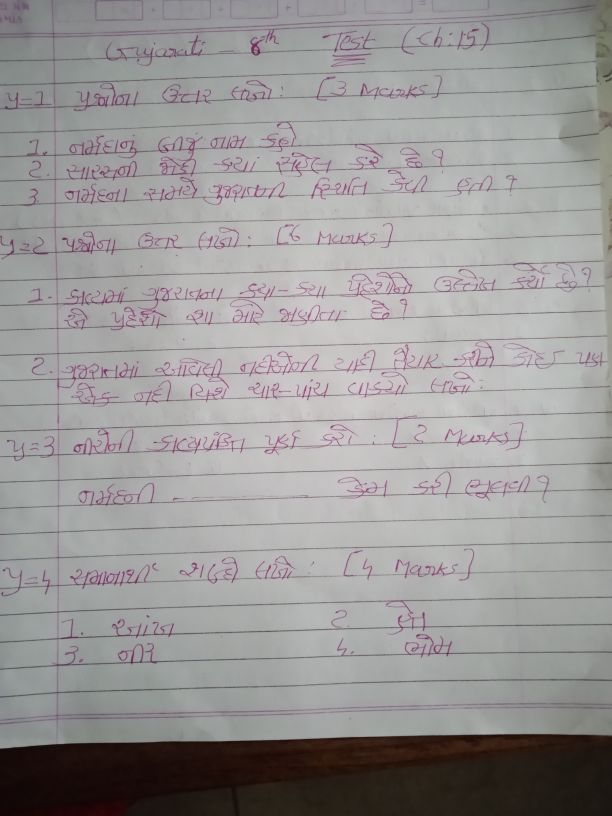 Gujarati - 8th Test (Ch:15)
પ્ર=1 પ્રશ્નોના ઉત્તર લખો: [3 Marks]
1. નર્મદાનું બીજું નામ કહો.
2. સારસની જોડી ક્યાં સહેલ કરે છે?
3. નર્મદના સમયે ગુજરાતની સ્થિતિ કેવી હતી?
પ્ર=2 પ્રશ્નોના ઉત્તર લખો: [6 Marks]
1. કાવ્યમાં ગુજરાતના કયા-કયા પ્રદેશોનો ઉલ્લેખ કર્યો છે?
એ પ્રદેશો શા માટે જાણીતા છે?
2. ગુજરાતમાં આવેલી નદીઓની યાદી તૈયાર કરીને કોઈ પણ
એક નદી વિશે ચાર-પાંચ વાક્યો લખો:
પ્ર=3 નીચેની કાવ્યપંક્તિ પૂર્ણ કરો: [2 Marks]
નર્મદની ---------- કેમ કરી ભૂલવી?
પ્ર=4 સમાનાર્થી શબ્દો લખો: [4 Marks]
1. આંખ 2. પ્રેમ
3. નીર 4. ભોમ